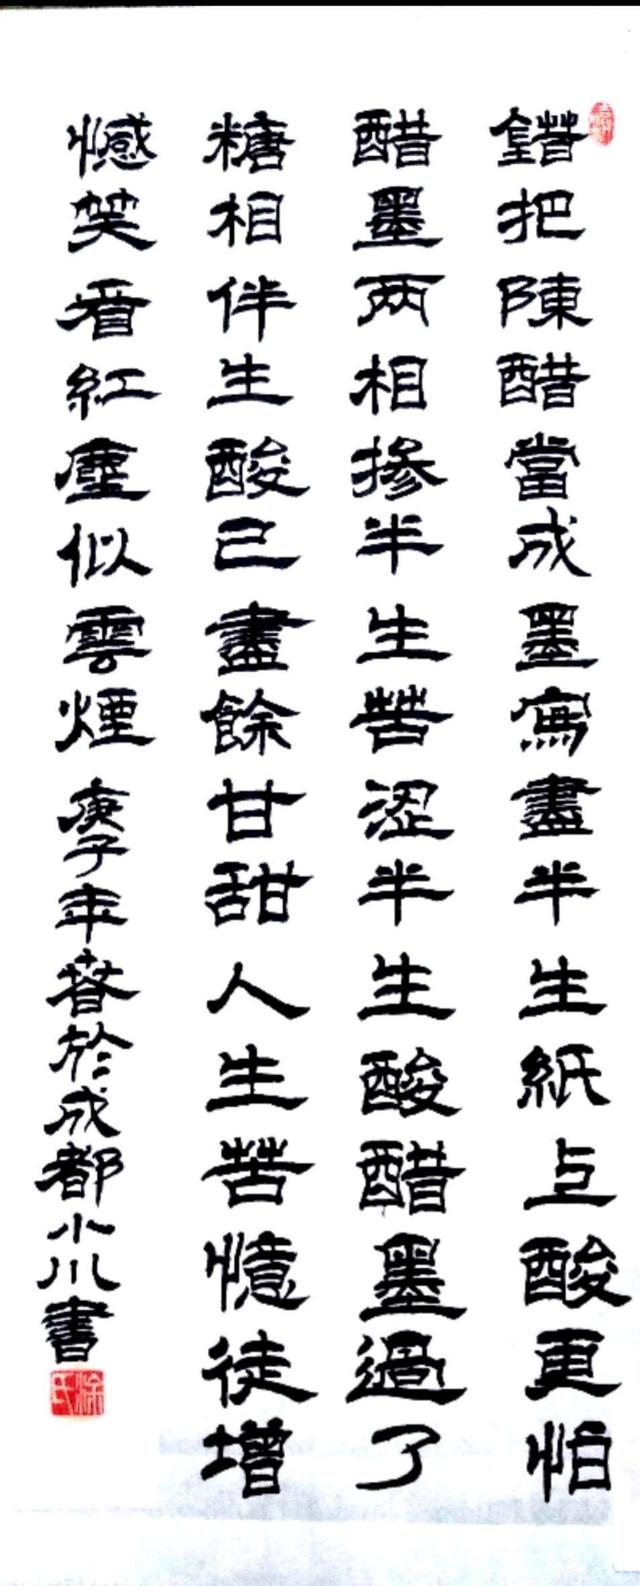 錯把陳醋當成墨寫盡半生紙上酸更怕
醋墨两相掺半生苦涩半生酸醋墨過了
糖相伴生酸已盡餘甘甜人生苦憶徒增
憾笑看紅塵似雲煙 庚子年春於成都小川書
涂氏